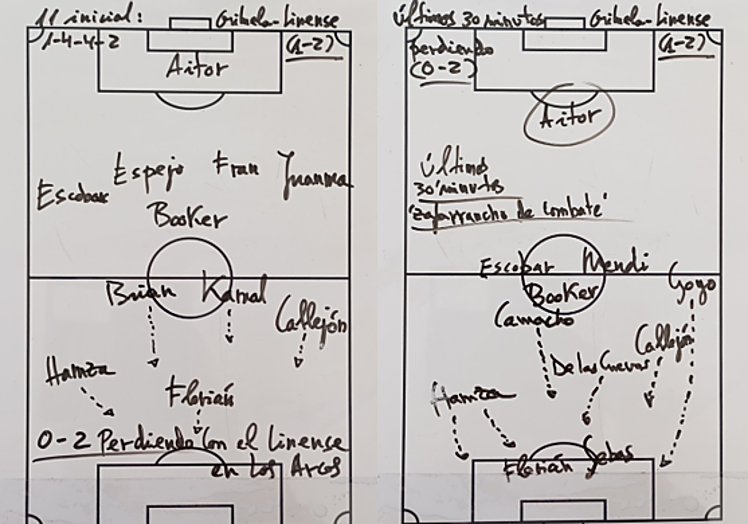 11 inicial:
Orihuela-Linense
1-4-4-2
(1-2)
Aitor
Escobar
Espejo
Fran
Juanma
Booker
Brian
Kamal
Callejón
Hamza
Florián
0-2 Perdiendo con el Linense
en Los Arcos
Últimos 30 minutos
Orihuela-Linense
perdiendo
(0-2)
(1-2)
Aitor
Últimos
30 minutos
'zafarrancho de combate'
Escobar
Mendi
Goyo
Booker
Camacho
Callejón
De las Cuevas
Hamza
Florián
Sebas